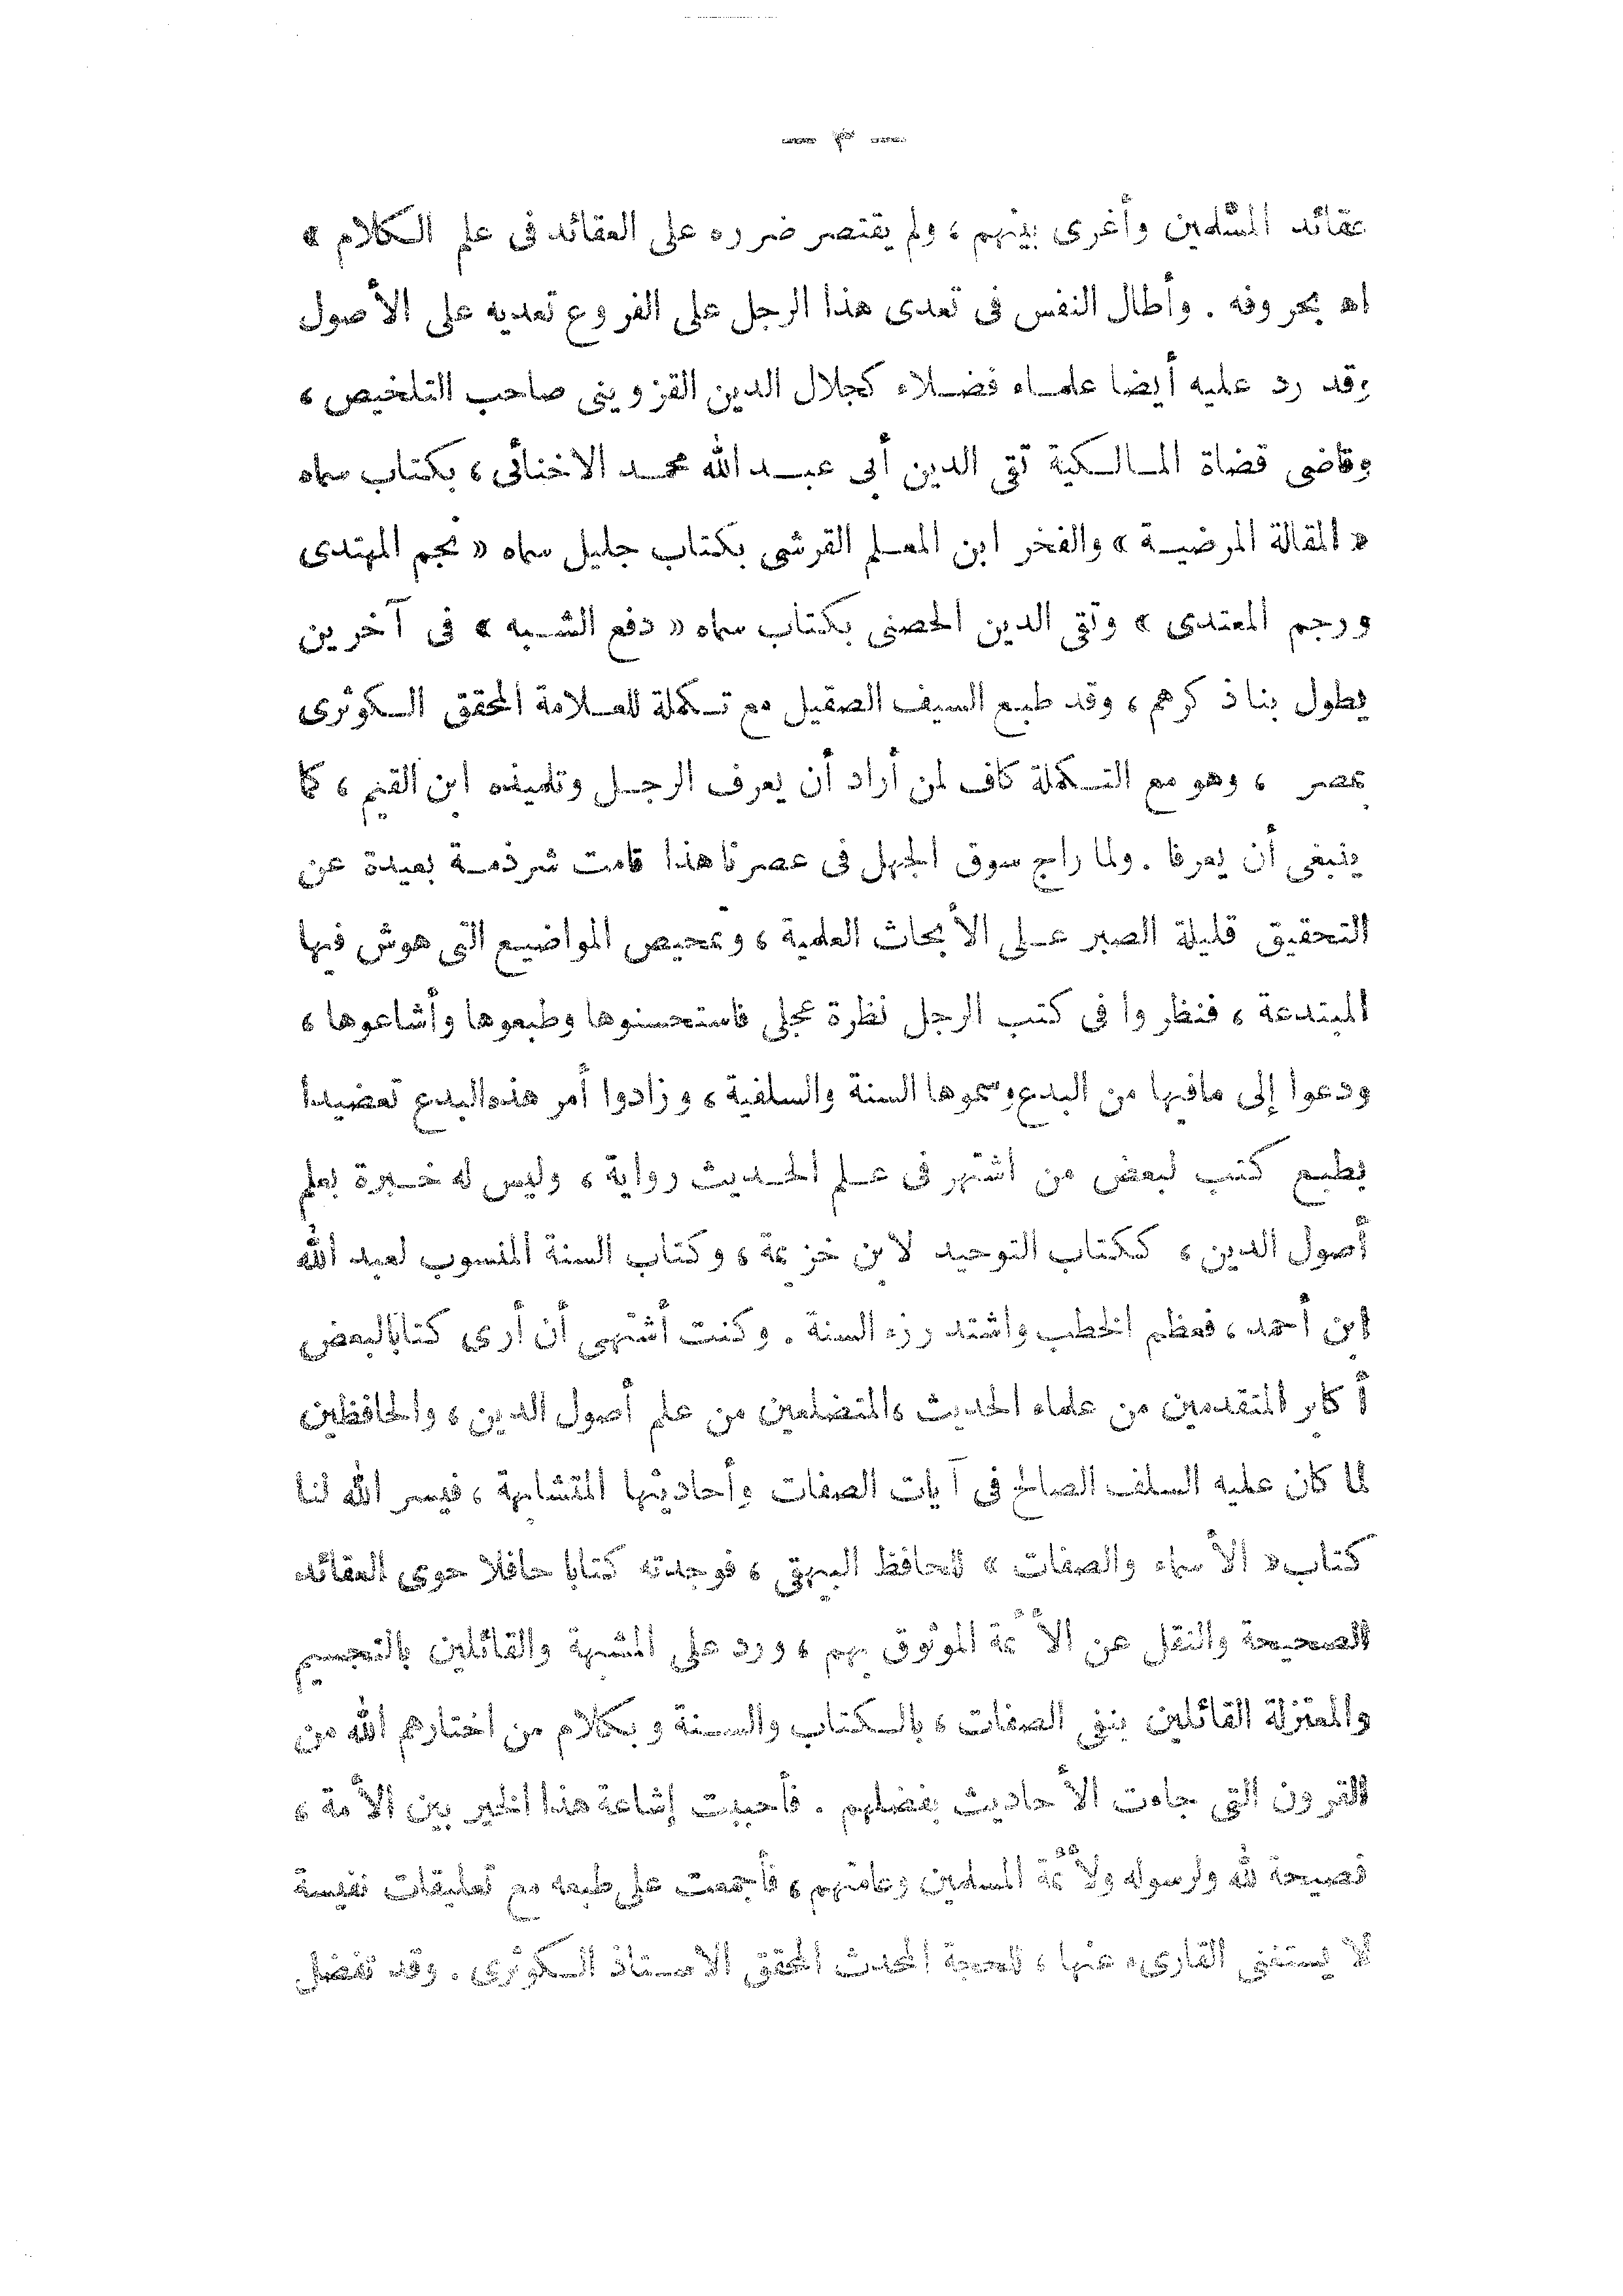 — ٣ —
عقائد المسلمين وأغرى بينهم ، ولم يقتصر ضرره على العقائد فى علم الكلام »
اه بحروفه . وأطال النفس فى تعدى هذا الرجل على الفروع تعديه على الأصول
وقد رد عليه أيضا علماء فضلاء كجلال الدين القزوينى صاحب التلخيص ،
وقاضى قضاة المالكية تقى الدين أبى عبد الله محمد الاخنائى ، بكتاب سماه
« المقالة المرضية » والفخر ابن المعلم القرشى بكتاب جليل سماه « نجم المهتدى
ورجم المعتدى » وتقى الدين الحصنى بكتاب سماه « دفع الشبه » فى آخرين
يطول بنا ذكرهم ، وقد طبع السيف الصقيل مع تكملة للعلامة المحقق الكوثرى
بمصر ، وهو مع التكملة كاف لمن أراد أن يعرف الرجل وتلميذه ابن القيم ، كما
ينبغى أن يعرفا . ولما راج سوق الجهل فى عصرنا هذا قامت شرذمة بعيدة عن
التحقيق قليلة الصبر على الأبحاث العلمية ، وتمحيص المواضيع التى هوش فيها
المبتدعة ، فنظروا فى كتب الرجل نظرة عجلى فاستحسنوها وطبعوها وأشاعوها ،
ودعوا إلى مافيها من البدع وسموها السنة والسلفية ، وزادوا أمر هذه البدع تعضيدا
بطبع كتب لبعض من اشتهر فى علم الحديث رواية ، وليس له خبرة بعلم
أصول الدين ، ككتاب التوحيد لابن خزيمة ، وكتاب السنة المنسوب لعبد الله
ابن أحمد ، فعظم الخطب واشتد رزء السنة . وكنت أشتهى أن أرى كتابا لبعض
أكابر المتقدمين من علماء الحديث ، المتضلعين من علم أصول الدين ، والحافظين
لما كان عليه السلف الصالح فى آيات الصفات وأحاديثها المتشابهة ، فيسر الله لنا
كتاب « الأسماء والصفات » للحافظ البيهقى ، فوجدته كتابا حافلا حوى العقائد
الصحيحة والنقل عن الأئمة الموثوق بهم ، ورد على المشبهة والقائلين بالتجسيم
والمعتزلة القائلين بنفى الصفات ، بالكتاب والسنة وبكلام من اختارهم الله من
القرون التى جاءت الأحاديث بفضلهم . فأحببت إشاعة هذا الخير بين الأمة ،
نصيحة لله ولرسوله ولأئمة المسلمين وعامتهم ، فأجمعت على طبعه مع تعليقات نفيسة
لا يستغنى القارىء عنها ، للحجة المحدث المحقق الاستاذ الكوثرى . وقد تفضل